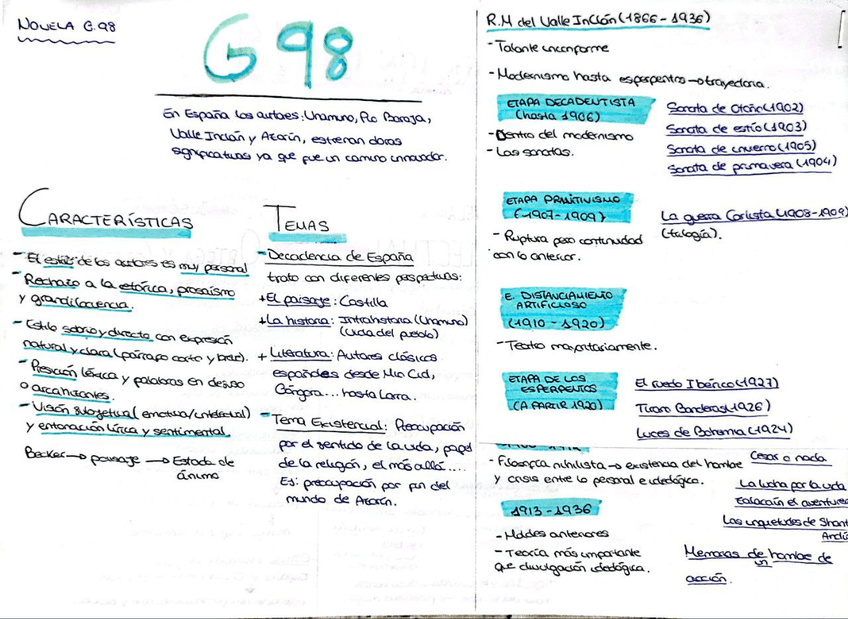 NOVELA G.98
G 98
En España los autores: Unamuno, Pío Baroja,
Valle Inclán y Azorín, estrenan obras
significativas ya que fue un camino innovador.
CARACTERÍSTICAS
- El estilo de los autores es muy personal
- Rechazo a la retórica, prosaísmo
y grandilocuencia.
- Estilo sobrio y directo con expresión
natural y clara (párrafo corto y breve).
- Presición léxica y palabras en desuso
o arcaizantes.
- Visión subjetiva (emotiva/intelectual)
y entonación lírica y sentimental.
Becker → paisaje → Estado de
ánimo
TEMAS
- Decadencia de España
trato con diferentes perspectivas:
+ El paisaje: Castilla
+ La historia: Intrahistoria (Unamuno)
(Vida del pueblo)
+ Literatura: Autores clásicos
españoles desde Mio Cid,
Góngora... hasta Larra.
- Tema Existencial: Preocupación
por el sentido de la vida, papel
de la religión, el más allá....
Ej: preocupación por fin del
mundo de Azorín.
R.M del Valle Inclán (1866 - 1936)
- Talante inconforme
- Modernismo hasta esperpentos → trayectoria.
ETAPA DECADENTISTA
(hasta 1906)
- Dentro del modernismo
- Las sonatas.
Sonata de Otoño (1902)
Sonata de estío (1903)
Sonata de invierno (1905)
Sonata de primavera (1904)
ETAPA PRIMITIVISMO
(1907-1909)
- Ruptura pero continuidad
con lo anterior.
La guerra Carlista (1908-1909)
(trilogía).
E. DISTANCIAMIENTO
ARTIFICIOSO
(1910 - 1920)
- Teatro mayoritariamente.
ETAPA DE LOS
ESPERPENTOS
(A PARTIR 1920)
El ruedo Ibérico (1927)
Tirano Banderas (1926)
Luces de Bohemia (1924)
- Filosofía nihilista → existencia del hombre
y crisis entre lo personal e ideológica.
Cesar o nada
La lucha por la vida
Zalacaín el aventurero
Las inquietudes de Shanti
Andía
1913 - 1936
- Moldes anteriores
- Teoría más importante
que divulgación ideológica.
Memorias de un hombre de
acción.